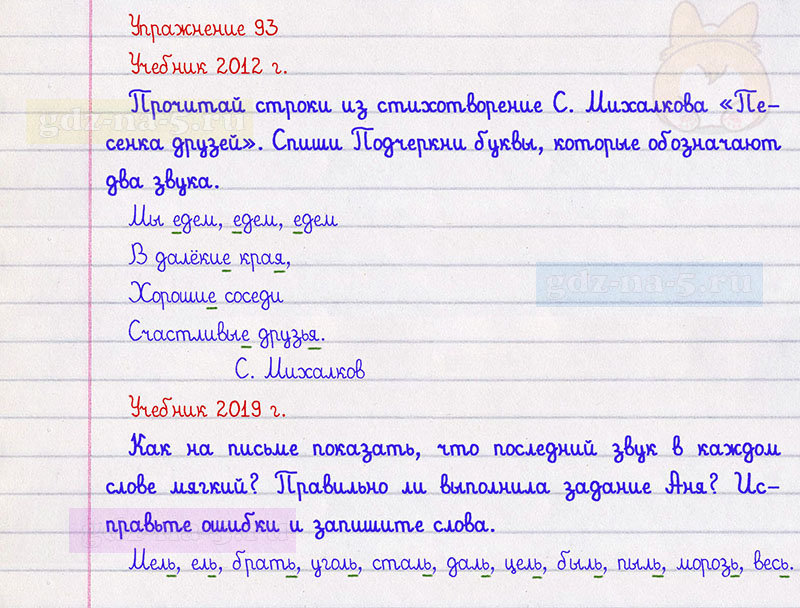 Упражнение 93
Учебник 2012 г.
Прочитай строки из стихотворение С. Михалкова «Пе-
сенка друзей». Спиши Подчеркни буквы, которые обозначают
два звука.
Мы едем, едем, едем
В далёкие края,
Хорошие соседи
Счастливые друзья.
С. Михалков
Учебник 2019 г.
Как на письме показать, что последний звук в каждом
слове мягкий? Правильно ли выполнила задание Аня? Ис-
правьте ошибки и запишите слова.
Мель, ель, брать, уголь, сталь, даль, цель, быль, пыль, морозь, весь.
gdz-na-5.ru
gdz-na-5.ru
gdz-na-5.ru